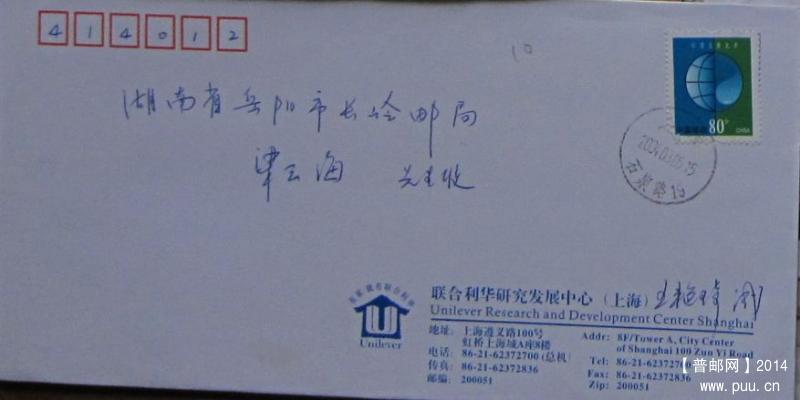 414012
10
湖南省岳阳市长岭邮局
梁云海 先生收
80分
CHINA
石泉路19
联合利华研究发展中心(上海)
Unilever Research and Development Center Shanghai
Unilever
地址: 上海遵义路100号
虹桥上海城A座8楼
电话: 86-21-62372700 (总机)
传真: 86-21-62372836
邮编: 200051
Addr: 8F/Tower A, City Center
of Shanghai 100 Zun Yi Road
Tel: 86-21-62372700
Fax: 86-21-62372836
Zip: 200051
【普邮网】2014
www.puu.cn